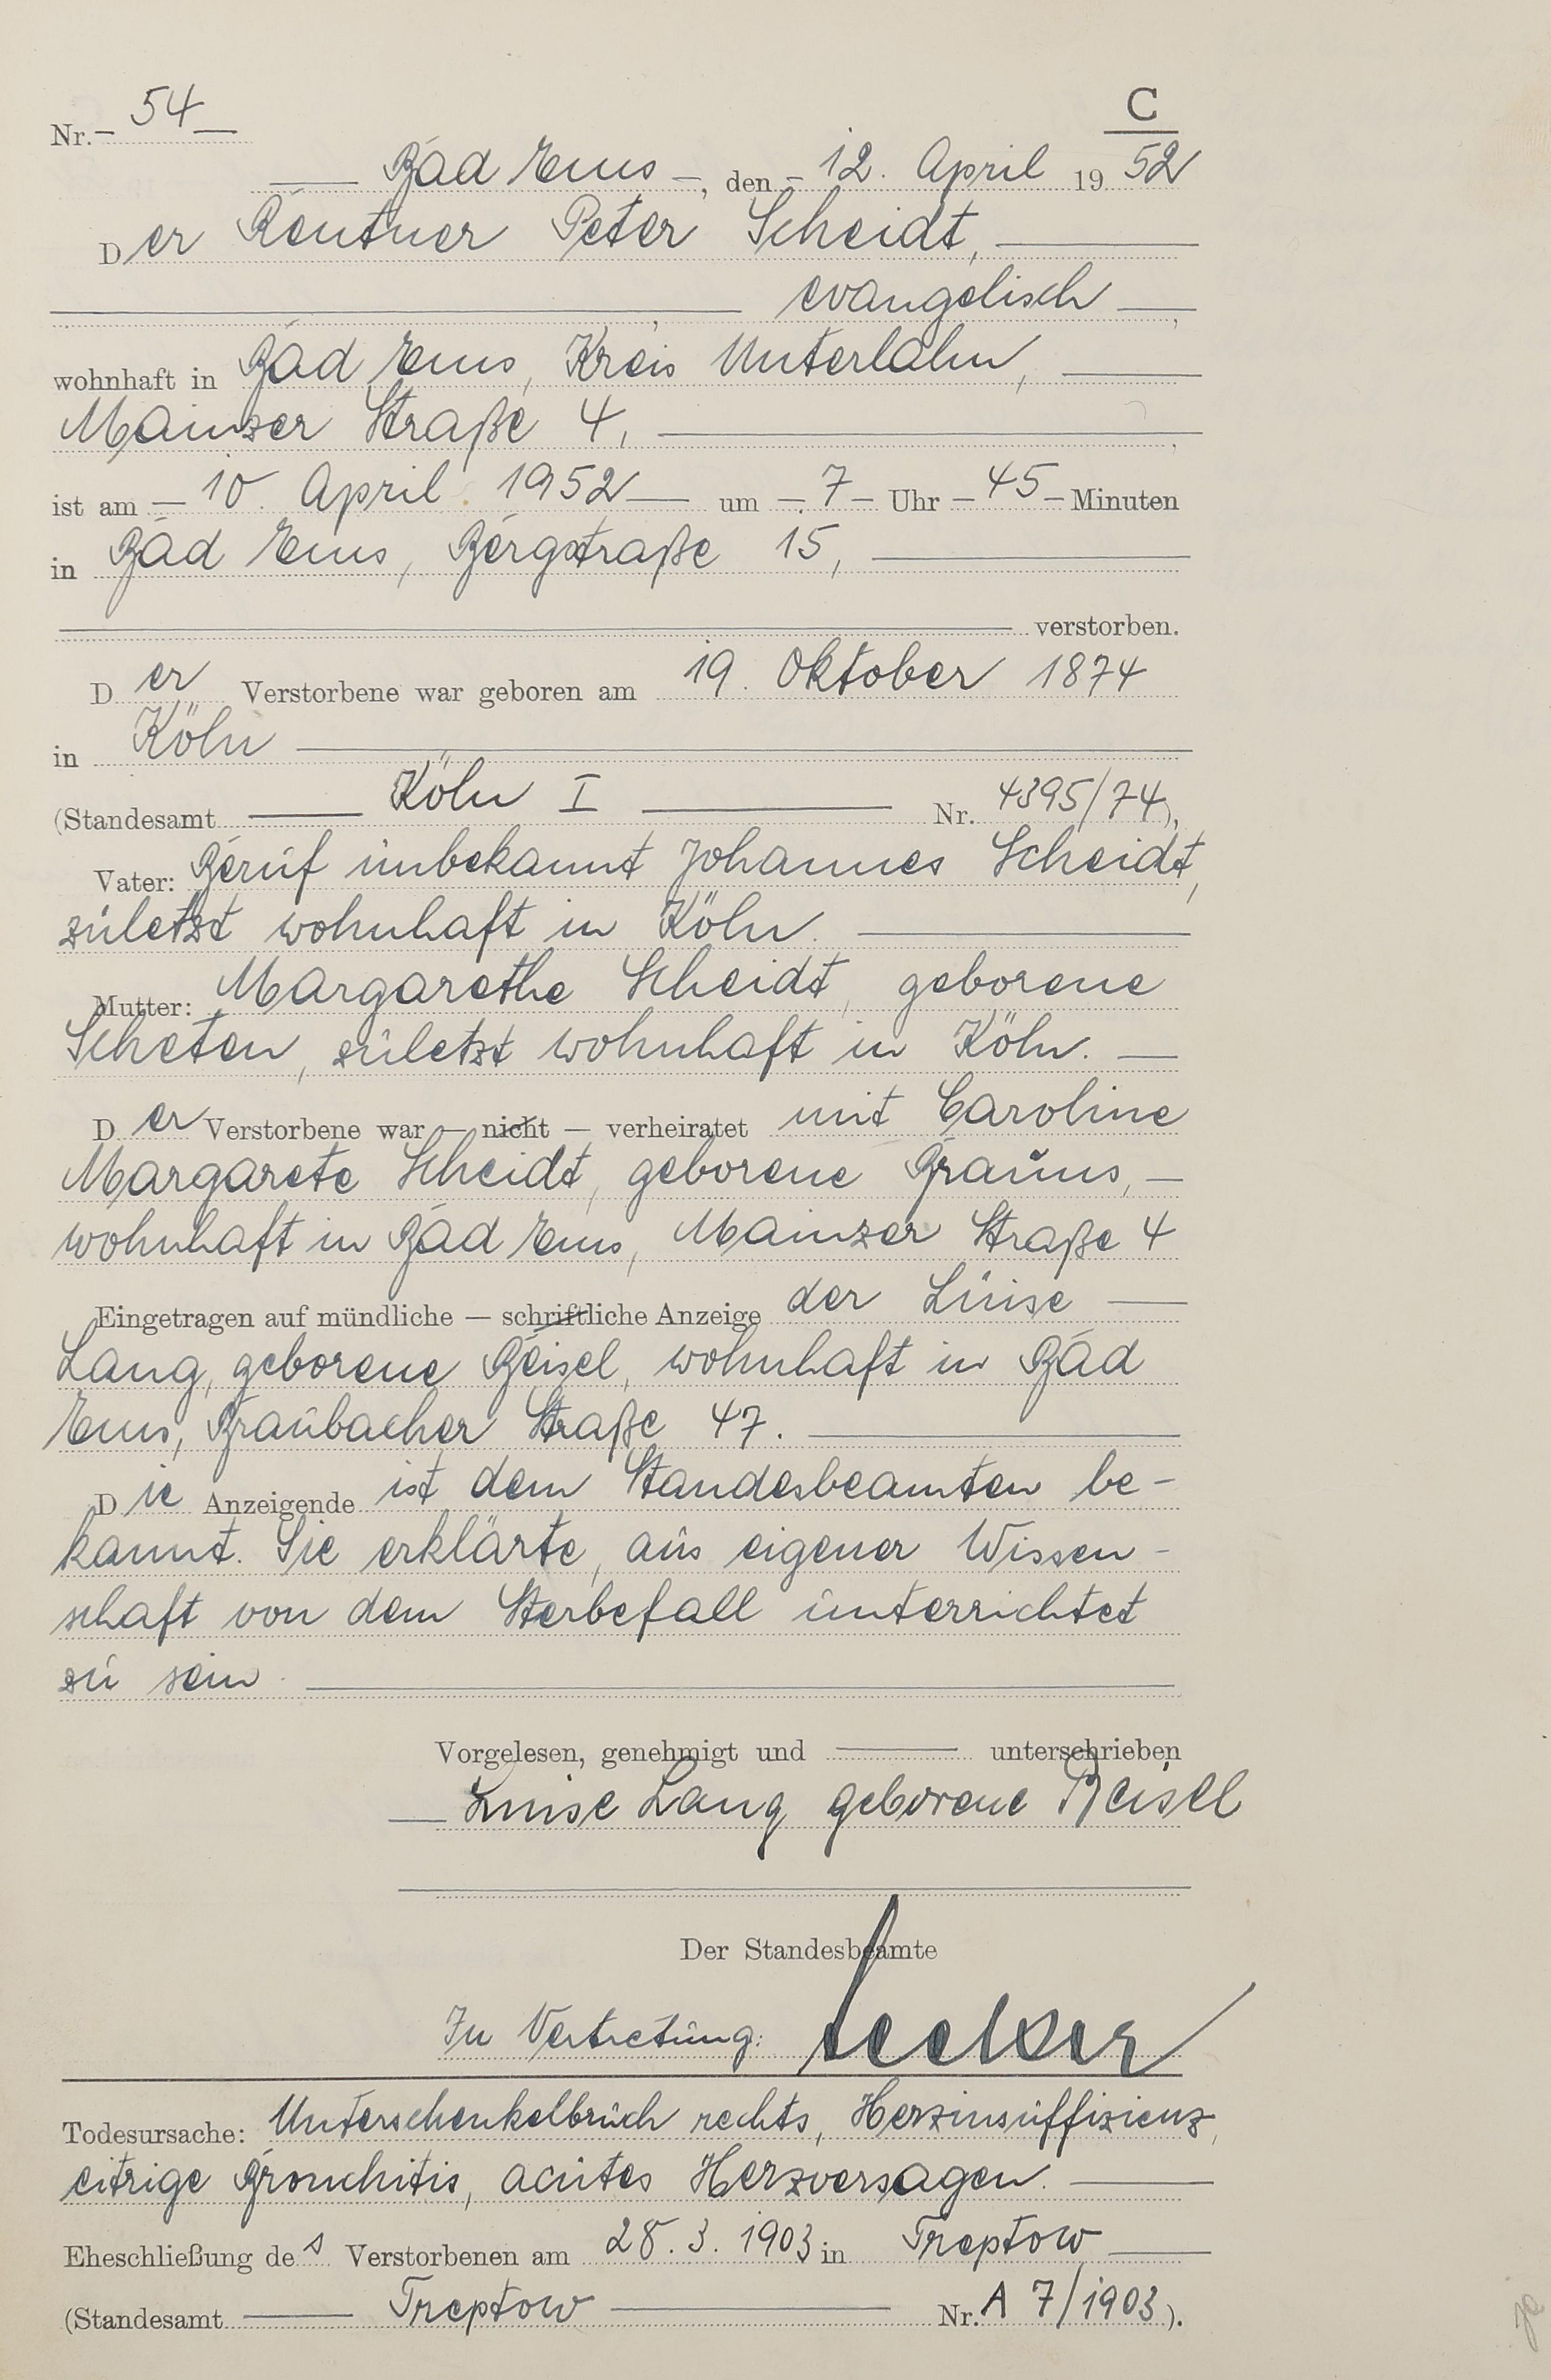 Nr. 54 C
Bad Ems, den 12. April 1952
Der Rentner Peter Scheidt,
evangelisch,
wohnhaft in Bad Ems, Kreis Unterlahn,
Mainzer Straße 4,
ist am 10. April 1952 um 7 Uhr 45 Minuten
in Bad Ems, Bergstraße 15,
verstorben.
Der Verstorbene war geboren am 19. Oktober 1874
in Köln
(Standesamt Köln I Nr. 4395/74),
Vater: Beruf unbekannt Johannes Scheidt,
zuletzt wohnhaft in Köln.
Mutter: Margarethe Scheidt, geborene
Scheten, zuletzt wohnhaft in Köln.
Der Verstorbene war — nicht — verheiratet mit Caroline
Margarete Scheidt, geborene Brauns,
wohnhaft in Bad Ems, Mainzer Straße 4
Eingetragen auf mündliche — schriftliche Anzeige der Luise
Lang, geborene Beisel, wohnhaft in Bad
Ems, Braubacher Straße 47.
Die Anzeigende ist dem Standesbeamten be-
kannt. Sie erklärte, aus eigener Wissen-
schaft von dem Sterbefall unterrichtet
zu sein.
Vorgelesen, genehmigt und unterschrieben
Luise Lang geborene Beisel
Der Standesbeamte
In Vertretung:
Todesursache: Unterschenkelbruch rechts, Herzinsuffizienz,
eitrige Bronchitis, acutes Herzversagen.
Eheschließung des Verstorbenen am 28.3.1903 in Treptow
(Standesamt Treptow Nr. A 7/1903).